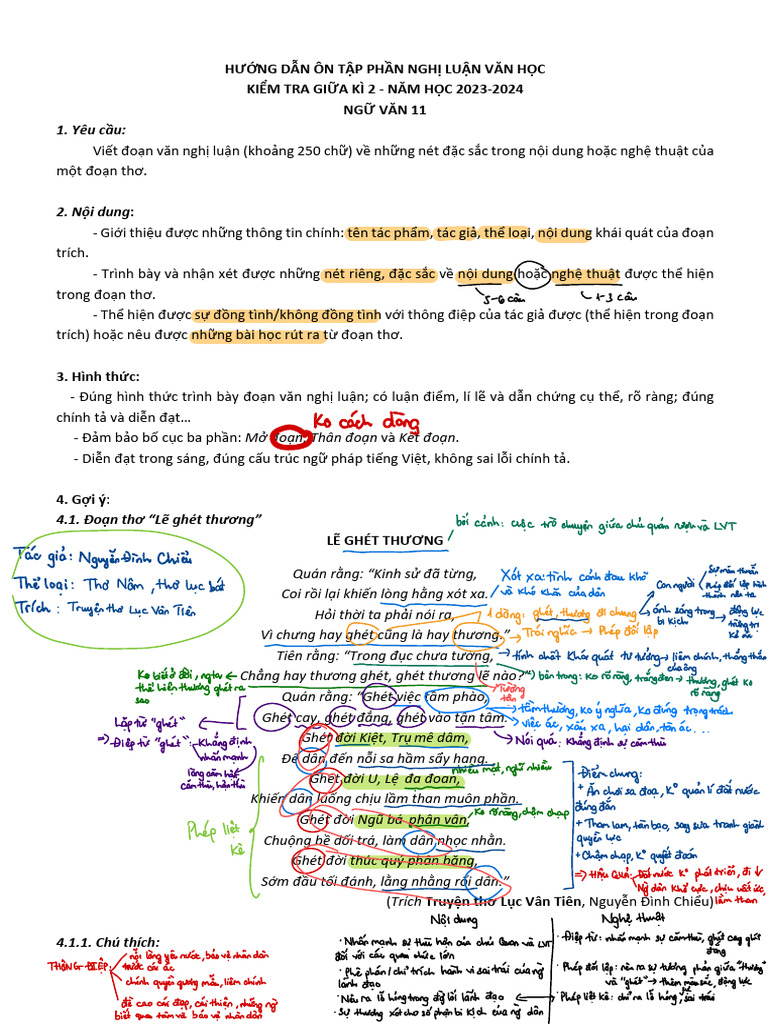 HƯỚNG DẪN ÔN TẬP PHẦN NGHỊ LUẬN VĂN HỌC
KIỂM TRA GIỮA KÌ 2 - NĂM HỌC 2023-2024
NGỮ VĂN 11
1. Yêu cầu:
Viết đoạn văn nghị luận (khoảng 250 chữ) về những nét đặc sắc trong nội dung hoặc nghệ thuật của
một đoạn thơ.
2. Nội dung:
- Giới thiệu được những thông tin chính: tên tác phẩm, tác giả, thể loại, nội dung khái quát của đoạn
trích.
- Trình bày và nhận xét được những nét riêng, đặc sắc về nội dung hoặc nghệ thuật được thể hiện
trong đoạn thơ.
5-6 câu
1-3 câu
- Thể hiện được sự đồng tình/không đồng tình với thông điệp của tác giả được (thể hiện trong đoạn
trích) hoặc nêu được những bài học rút ra từ đoạn thơ.
3. Hình thức:
- Đúng hình thức trình bày đoạn văn nghị luận; có luận điểm, lí lẽ và dẫn chứng cụ thể, rõ ràng; đúng
chính tả và diễn đạt...
Ko cách dòng
- Đảm bảo bố cục ba phần: Mở đoạn, Thân đoạn và Kết đoạn.
- Diễn đạt trong sáng, đúng cấu trúc ngữ pháp tiếng Việt, không sai lỗi chính tả.
4. Gợi ý:
4.1. Đoạn thơ “Lẽ ghét thương”
bối cảnh: cuộc trò chuyện giữa chủ quán rượu và LVT
LẼ GHÉT THƯƠNG
Tác giả: Nguyễn Đình Chiểu
Thể loại: Thơ Nôm, thơ lục bát
Trích: Truyện thơ Lục Vân Tiên
Quán rằng: “Kinh sử đã từng,
Coi rồi lại khiến lòng hằng xót xa.
Xót xa: tình cảnh đau khổ
và khó khăn của dân
Hỏi thời ta phải nói ra,
Vì chưng hay ghét cũng là hay thương.”
1 dòng: ghét, thương đi chung
→ Trái nghĩa → Phép đối lập
Con người
ánh sáng trong bi kịch
Tiên rằng: “Trong đục chưa tường,
→ tính chất khái quát tư tưởng → liêm chính, thẳng thắn
của ông
Chẳng hay thương ghét, ghét thương lẽ nào?”
Tường tận
Quán rằng: “Ghét việc tầm phào,
→ tầm thường, ko ý nghĩa, ko đúng trọng trách
Ghét cay, ghét đắng, ghét vào tận tâm.
→ việc ác, xấu xa, hại dân, tàn ác...
→ Nói quá: Khẳng định sự căm thù
Lặp từ “ghét”
⇒ Điệp từ “ghét”: Khẳng định
nhấn mạnh
Ghét đời Kiệt, Trụ mê dâm,
Để dân đến nỗi sa hầm sẩy hang.
Ghét đời U, Lệ đa đoan,
nhiều mặt, nghĩ nhiều
Khiến dân luống chịu lầm than muôn phần.
Ghét đời Ngũ bá phân vân,
Ko rõ ràng, chậm chạp
Chuộng bề dối trá, làm dân nhọc nhằn.
Ghét đời thúc quý phân băng,
Sớm đầu tối đánh, lằng nhằng rối dân.”
Phép liệt kê
Điểm chung:
+ Ăn chơi sa đoạ, K° quản lí đất nước
đúng đắn
+ Tham lam, tàn bạo, say sưa tranh giành
quyền lực
+ Chậm chạp, K° quyết đoán
⇒ Hậu Quả: Đất nước K° phát triển, đi ↓
lầm than
(Trích Truyện thơ Lục Vân Tiên, Nguyễn Đình Chiểu)
4.1.1. Chú thích:
THÔNG ĐIỆP:
nỗi lòng yêu nước, bảo vệ nhân dân
trước cái ác
chính quyền gương mẫu, liêm chính
đề cao cái đẹp, cái thiện, những ng
biết quan tâm và bảo vệ nhân dân
Nội dung
· Nhấn mạnh sự thù hận của chủ Quán và LVT
đối với các quan chức lớn
· Phê phán/chỉ trích hành vi sai trái của ng
lãnh đạo
· Nêu ra lỗ hổng trong lãnh đạo
· Sự thương xót cho số phận bi kịch của ng dân
Nghệ thuật
· Điệp từ: nhấn mạnh sự căm thù, ghét cay ghét
đắng
· Phép đối lập: nêu ra sự tương phản giữa “thương”
và “ghét”
· Phép liệt kê: chỉ ra lỗ hổng, sai trái